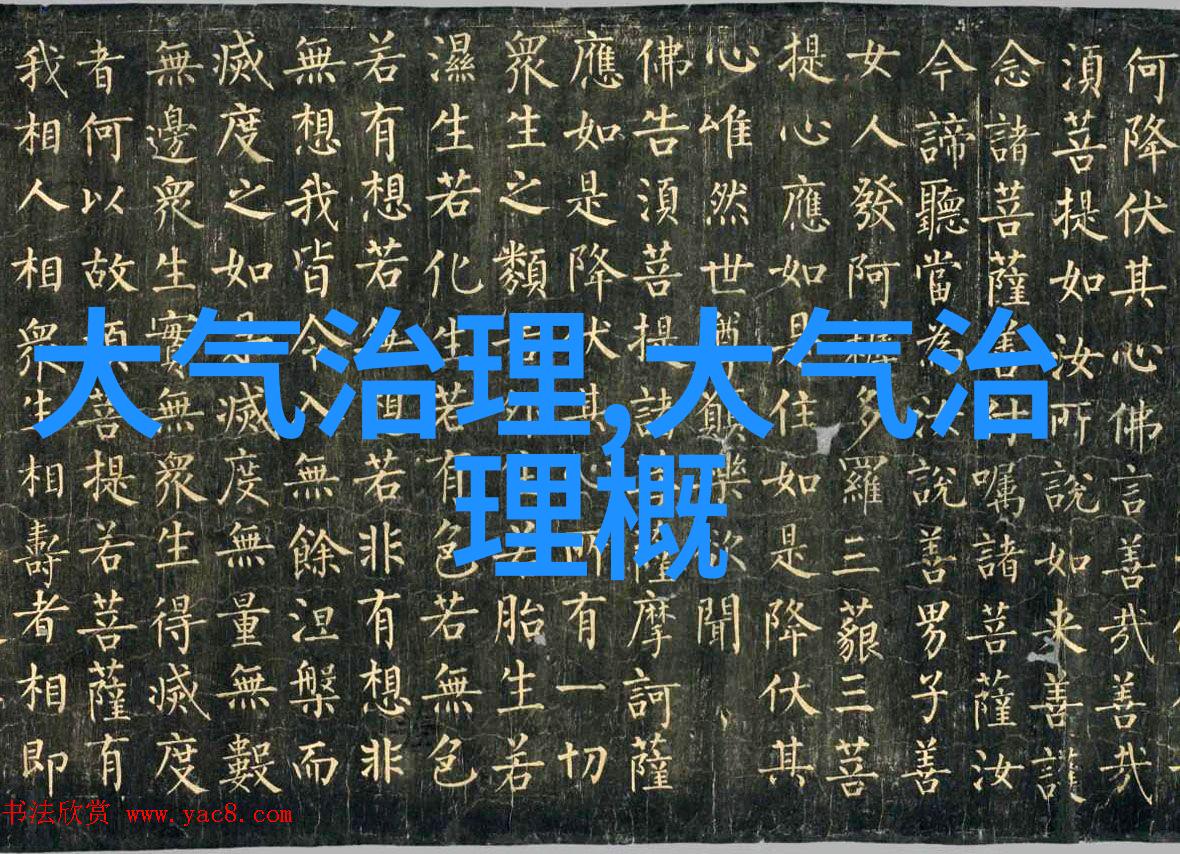 大气治理,大气治
理概
何降伏其心佛言善哉善哉
須菩提如汝所說如来善護
念諸菩薩善付嘱諸菩薩汝
今諦聽當為汝說善男子善
女人發阿耨多羅三藐三菩
提心應如是住如是降伏其
心唯然世尊願樂欲聞
佛告須菩提諸菩薩摩訶薩
應如是降伏其心所有一切
眾生之類若卵生若胎生若
濕生若化生若有色若無色
若有想若無想若非有想非
無想我皆令入無餘涅槃而
滅度之如是滅度無量無數
無邊眾生實無眾生得滅度
者何以故須菩提若菩薩有
我相人相眾生相壽者相即
书法欣赏 www.yac8.com